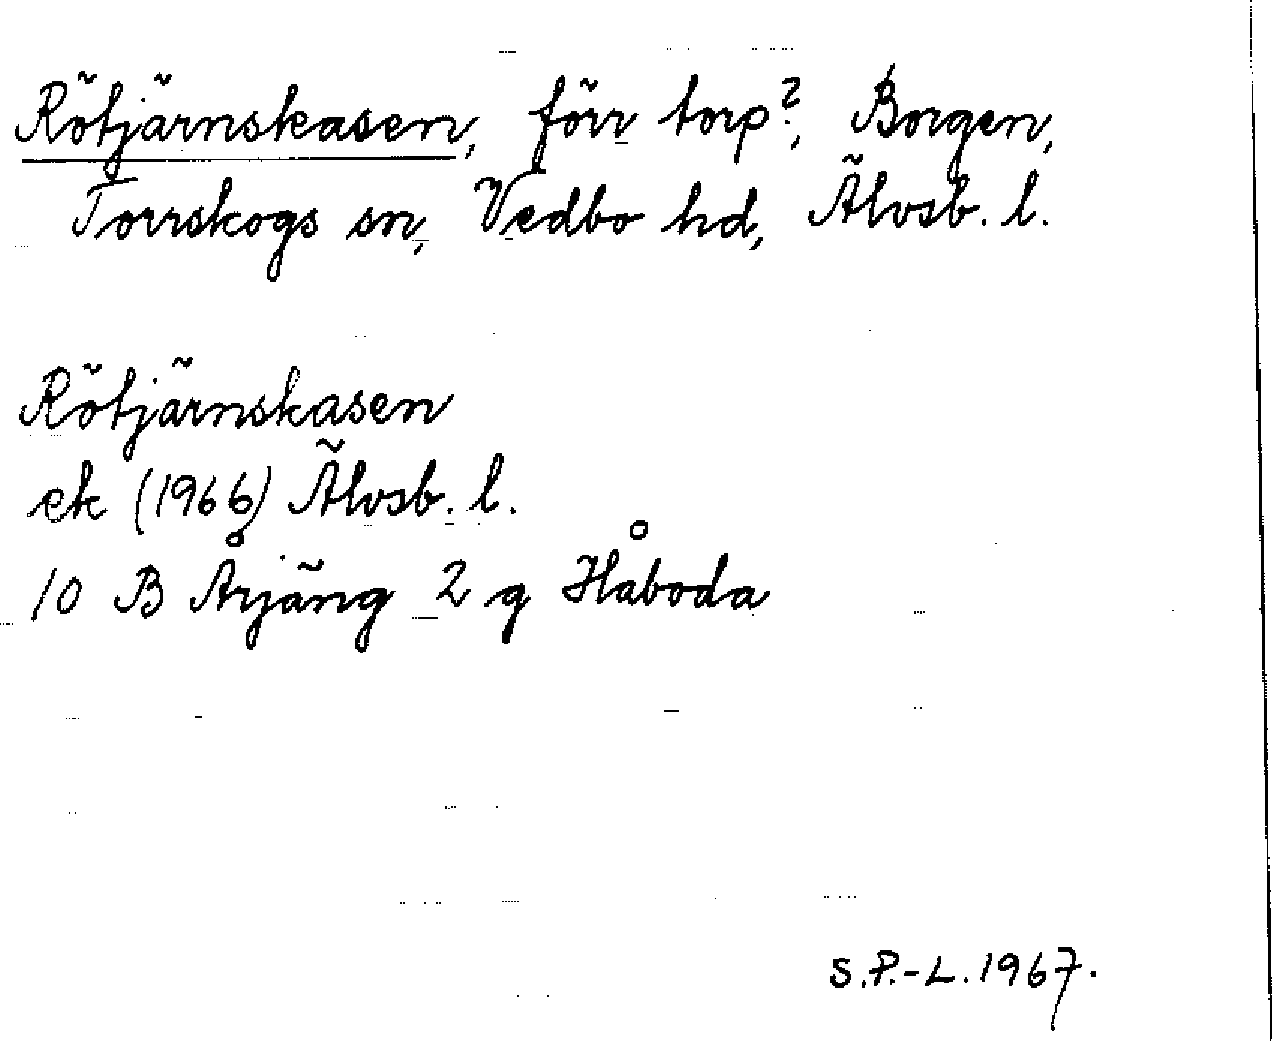 Rötjärnskasen, förr torp?, Borgen,
Torrskogs sn, Vedbo hd, Älvsb. l.
Rötjärnskasen
ek (1966) Älvsb. l.
10 B Årjäng 2 g Håboda
S.P.-L. 1967.